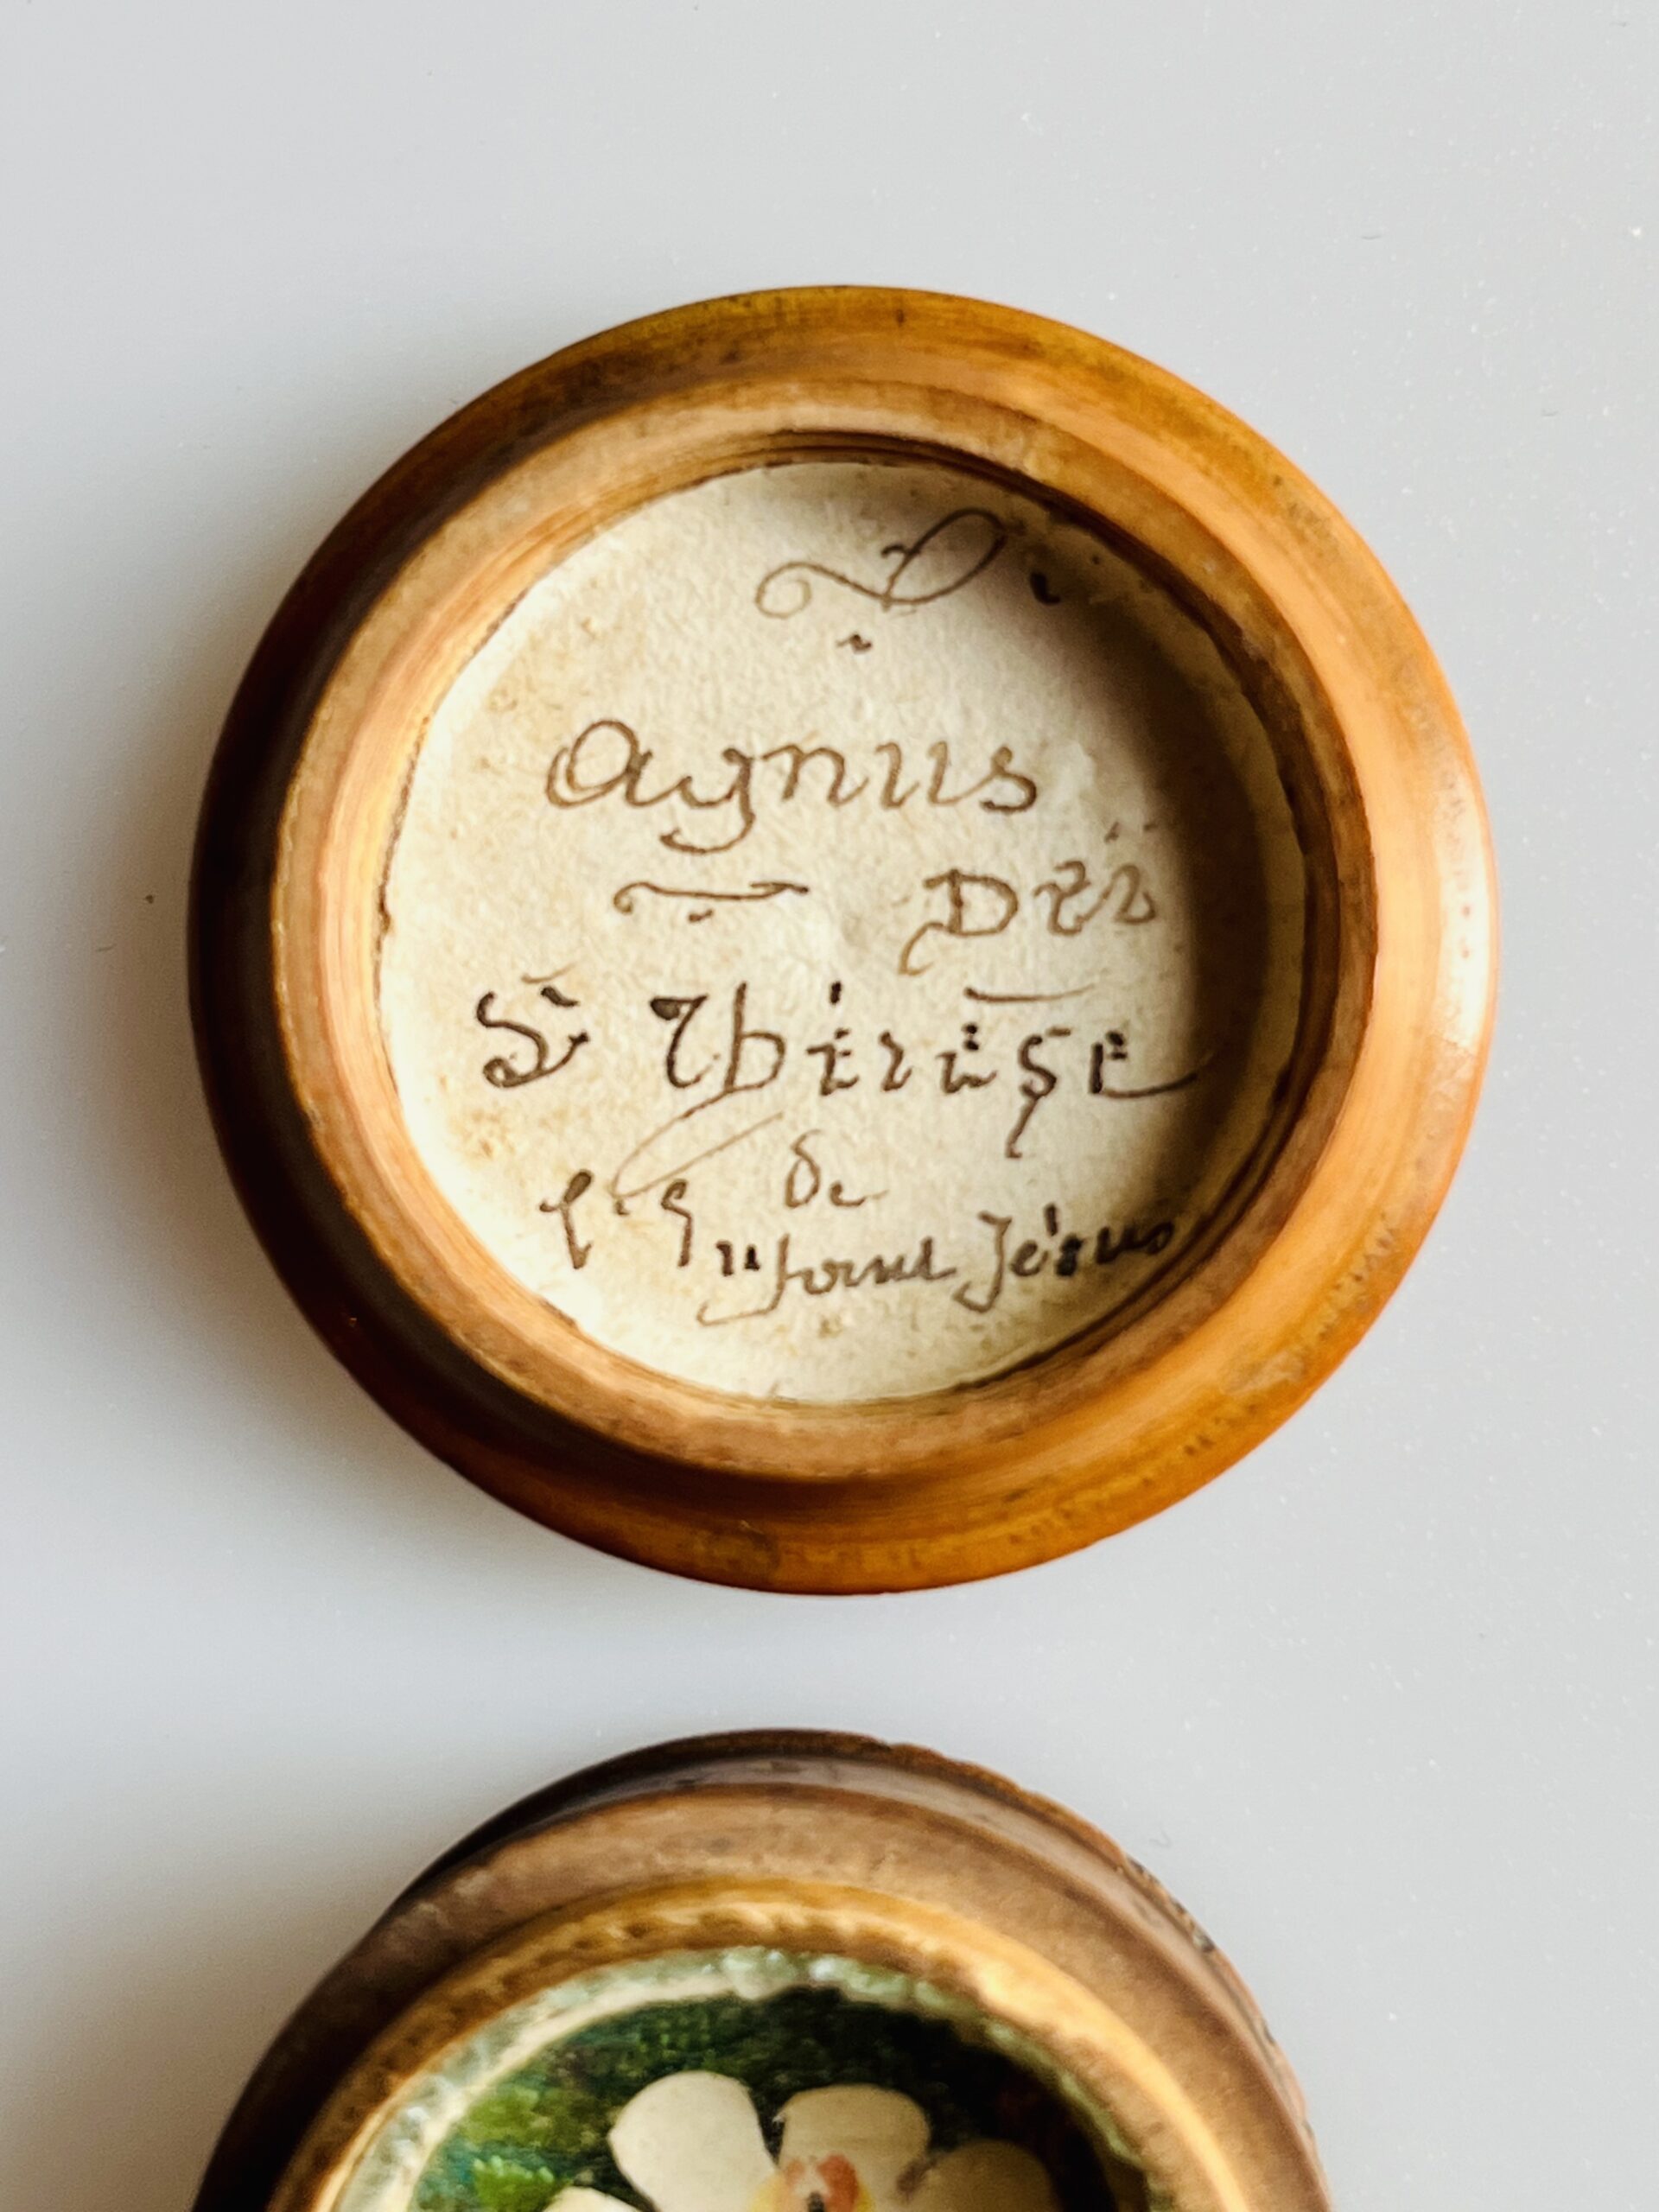 Agnus
Dei
Ste Thérèse
de
l'Enfant Jésus